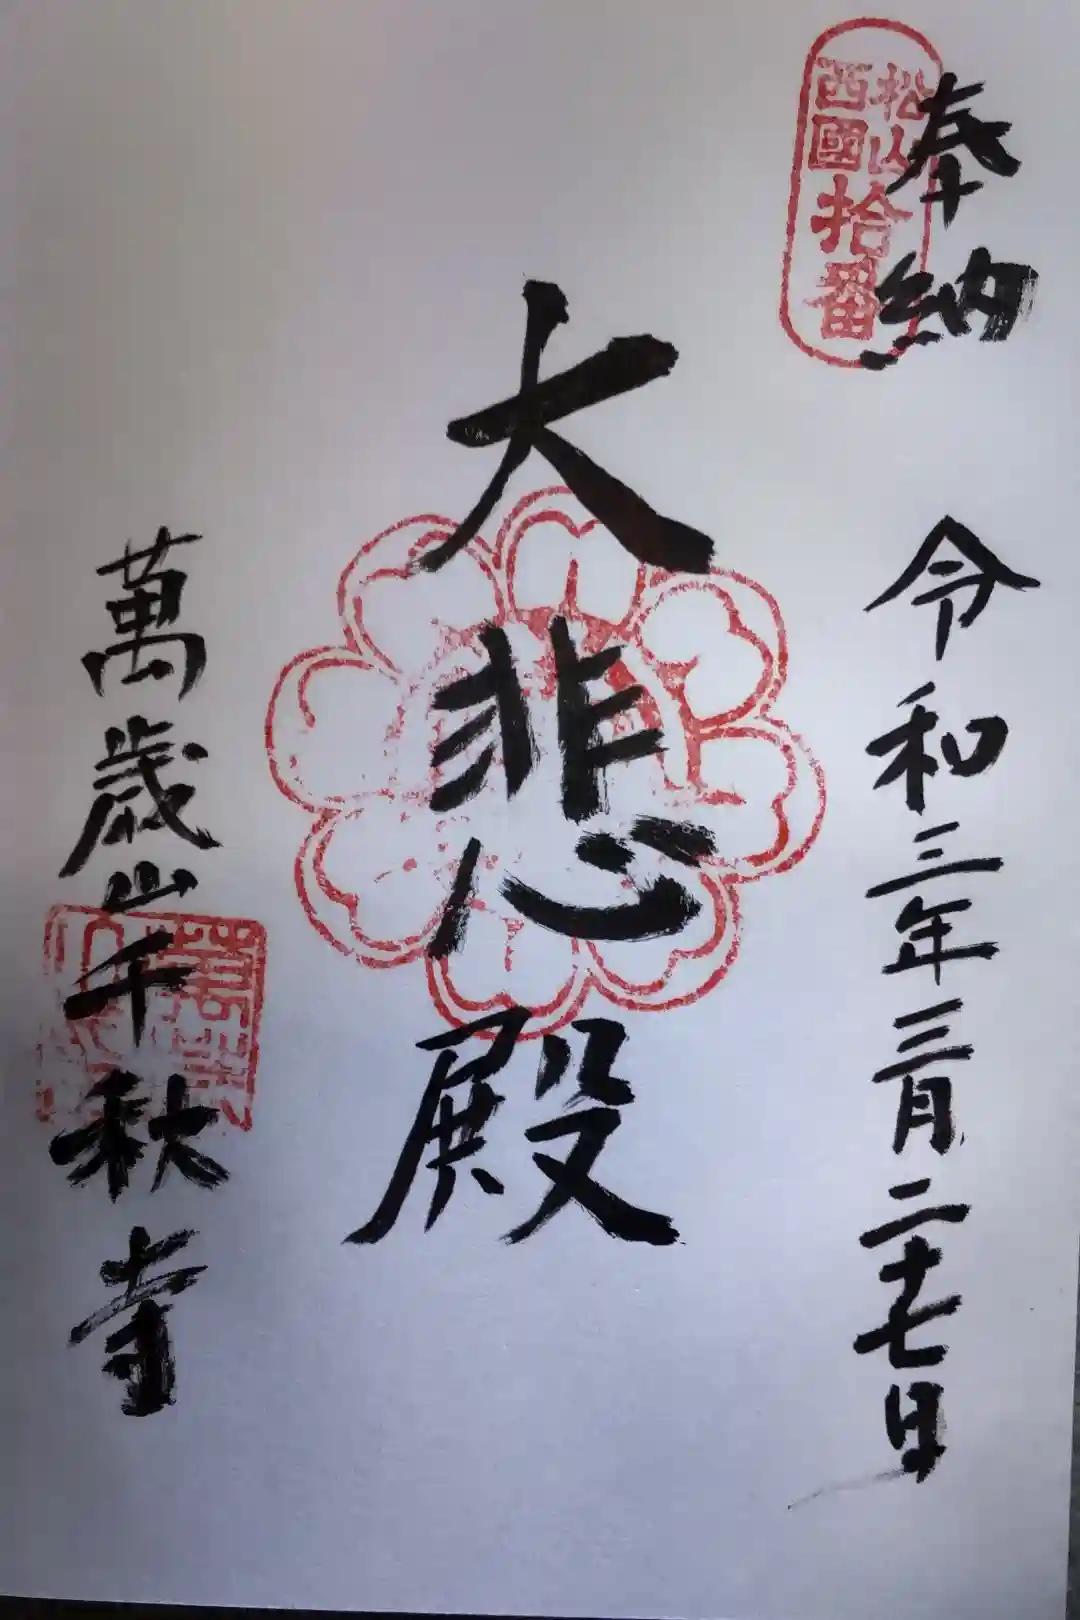 奉納
松山
西國
拾番
令和三年三月二十七日
大悲殿
萬歳山千秋寺